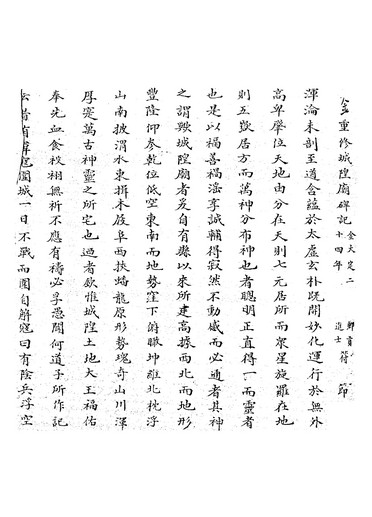 金重修城隍廟碑記 金大定二十四年 鄉貢進士 符節
渾淪未剖至道含蘊於太虛玄朴既開妙化運行於無外
高卑舉位天地由分在天則七元居所而眾星旋羅在地
則五嶽居方而萬神分布神也者聰明正直得一而靈者
也是以福善禍淫孚誠輔得寂然不動感而必通者其神
之謂歟城隍廟者爰自有縣以來所建高據西北而地形
豐隆仰參乾位低空東南而地勢窪下俯瞰坤維北枕浮
山南披渭水東揖木殿阜西挾皤龍原形勢瑰奇山川渾
厚寔萬古神靈之所宅也過者欽惟城隍土地大王福佑
奉先血食無祈不應有禱必孚憑何道子所作記
云昔有群寇圍城一日不戰而圍自解寇曰有陰兵浮空